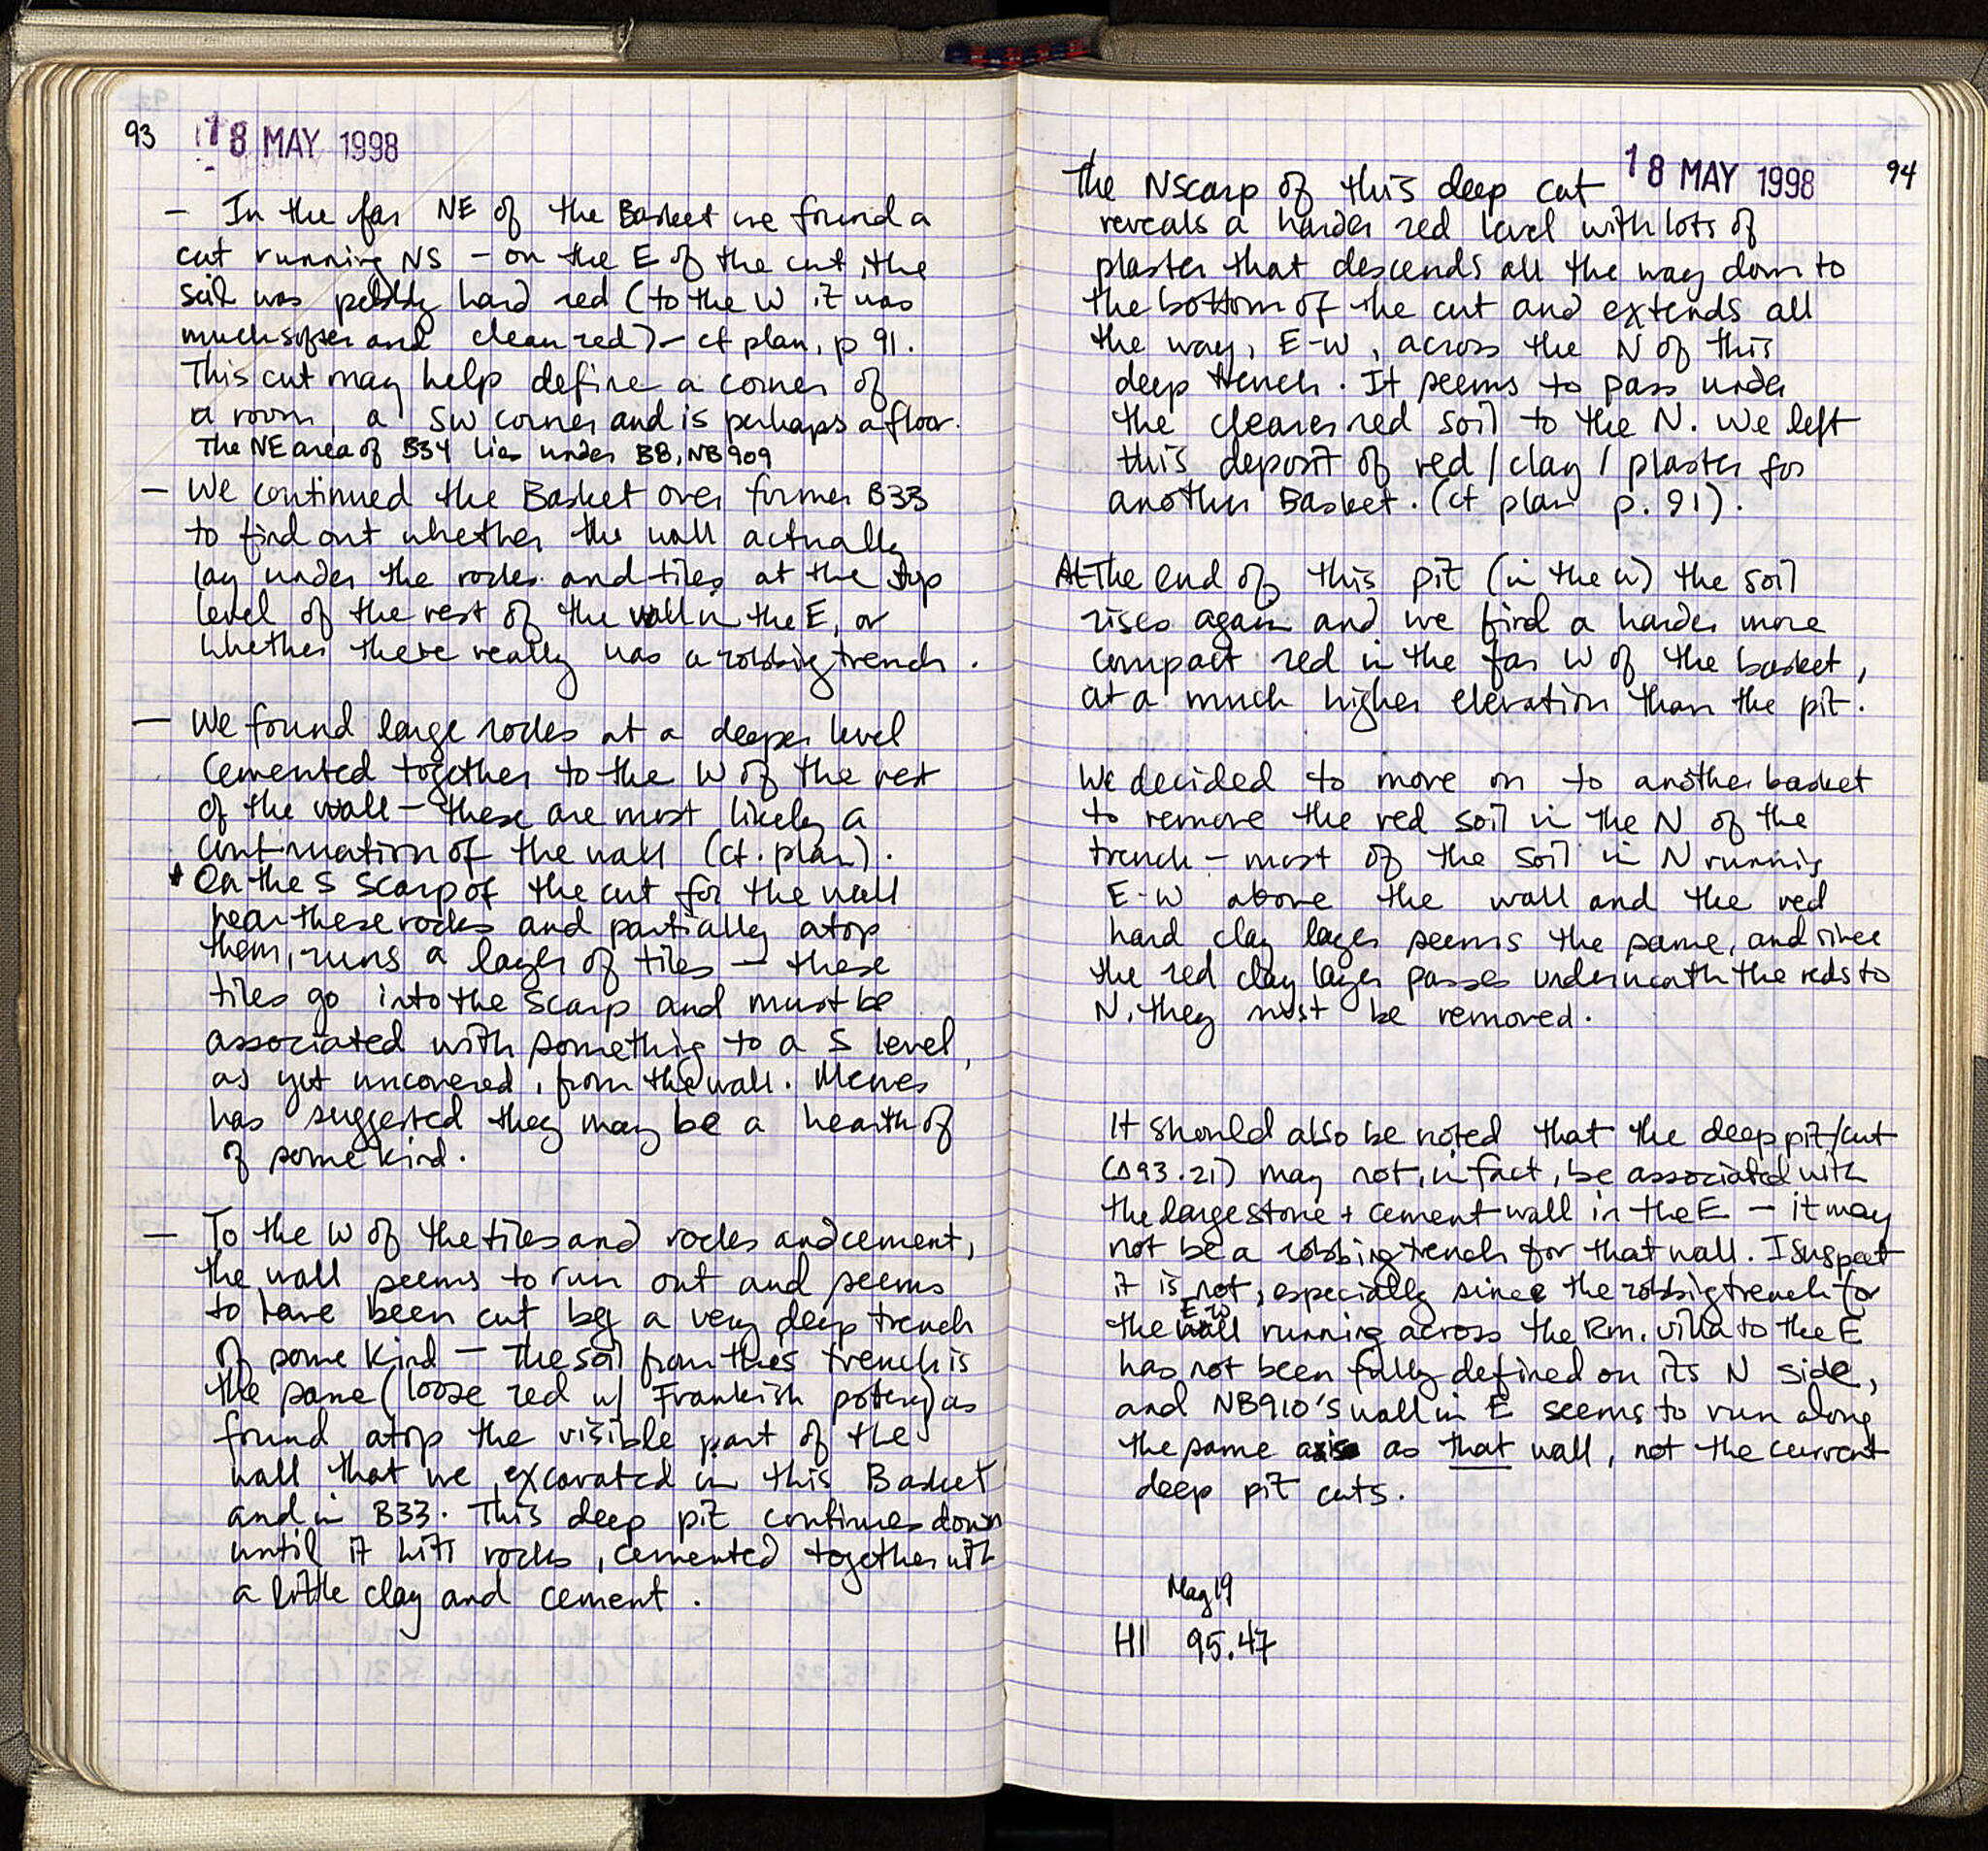 93
18 MAY 1998
- In the far NE of the Basket we found a
cut running NS - on the E of the cut, the
soil was pebbly hard red (to the W it was
much softer and clean red) - cf plan, p 91.
This cut may help define a corner of
a room, a SW corner and is perhaps a floor.
The NE area of B34 lies under B8, NB909
- We continued the Basket over former B33
to find out whether the wall actually
lay under the rocks and tiles at the top
level of the rest of the wall in the E, or
whether there really was a robbing trench.
- We found large rocks at a deeper level
cemented together to the W of the rest
of the wall - these are most likely a
continuation of the wall (cf. plan).
On the S scarp of the cut for the wall
near these rocks and partially atop
them, runs a layer of tiles - these
tiles go into the scarp and must be
associated with something to a S level,
as yet uncovered, from the wall.
has suggested they may be a hearth of
of some kind.
- To the W of the tiles and rocks and cement,
the wall seems to run out and seems
to have been cut by a very deep trench
of some kind - the soil from this trench is
the same (loose red w/ Frankish pottery) as
found atop the visible part of the
wall that we excavated in this Basket
and in B33. This deep pit continues down
until it hits rocks, cemented together with
a little clay and cement.
18 MAY 1998
94
The N scarp of this deep cut
reveals a harder red level with lots of
plaster that descends all the way down to
the bottom of the cut and extends all
the way, E-W, across the N of this
deep trench. It seems to pass under
the cleaner red soil to the N. We left
this deposit of red/clay/plaster for
another Basket. (cf plan p. 91).
At the end of this pit (in the W) the soil
rises again and we find a harder more
compact red in the far W of the basket,
at a much higher elevation than the pit.
We decided to move on to another basket
to remove the red soil in the N of the
trench - most of the soil in N running
E-W above the wall and the red
hard clay layer seems the same, and since
the red clay layer passes underneath the reds to
N, they must be removed.
It should also be noted that the deep pit/cut
(Δ93.21) may not, in fact, be associated with
the large stone + cement wall in the E - it may
not be a robbing trench for that wall. I suspect
it is not, especially since the robbing trench for
the E-W wall running across the Rm. villa to the E
has not been fully defined on its N side,
and NB910's wall in E seems to run along
the same axis as that wall, not the current
deep pit cuts.
May 19
HI 95.47